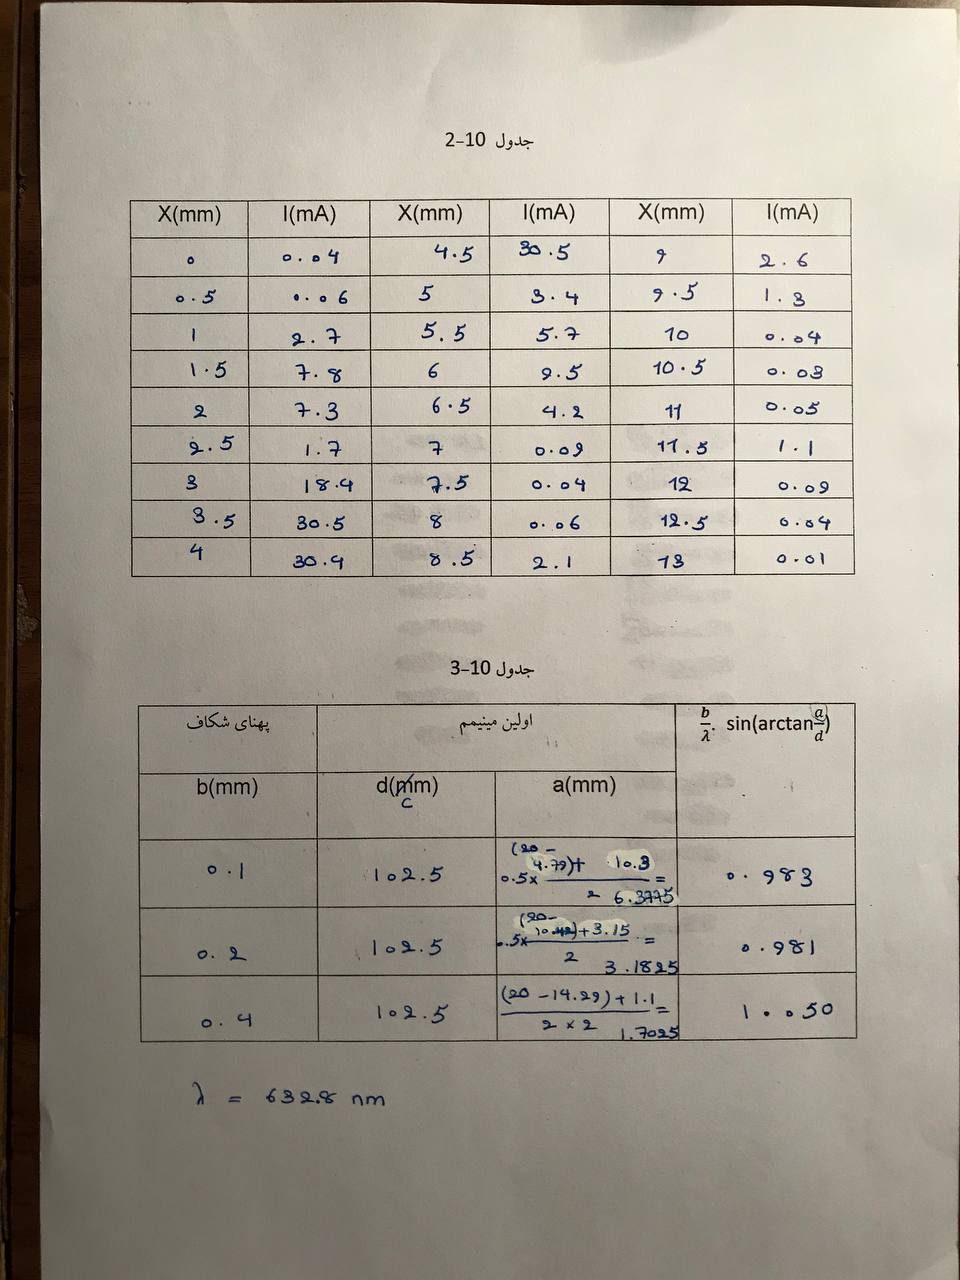 جدول 10-2
X(mm) I(mA) X(mm) I(mA) X(mm) I(mA)
0 0.04 4.5 30.5 9 2.6
0.5 0.06 5 3.4 9.5 1.3
1 2.7 5.5 5.7 10 0.04
1.5 7.8 6 9.5 10.5 0.03
2 7.3 6.5 4.2 11 0.05
2.5 1.7 7 0.09 11.5 1.1
3 18.4 7.5 0.04 12 0.09
3.5 30.5 8 0.06 12.5 0.04
4 30.4 8.5 2.1 13 0.01
جدول 10-3
پهنای شکاف اولین مینیمم b/λ . sin(arctan a/d)
b(mm) d(cm) a(mm)
0.1 102.5 0.5× (20-4.79)+10.3 / 2 = 6.3775 0.983
0.2 102.5 0.5× (20-10.42)+3.15 / 2 = 3.1825 0.981
0.4 102.5 (20-14.29)+1.1 / 2×2 = 1.7025 1.050
λ = 632.8 nm